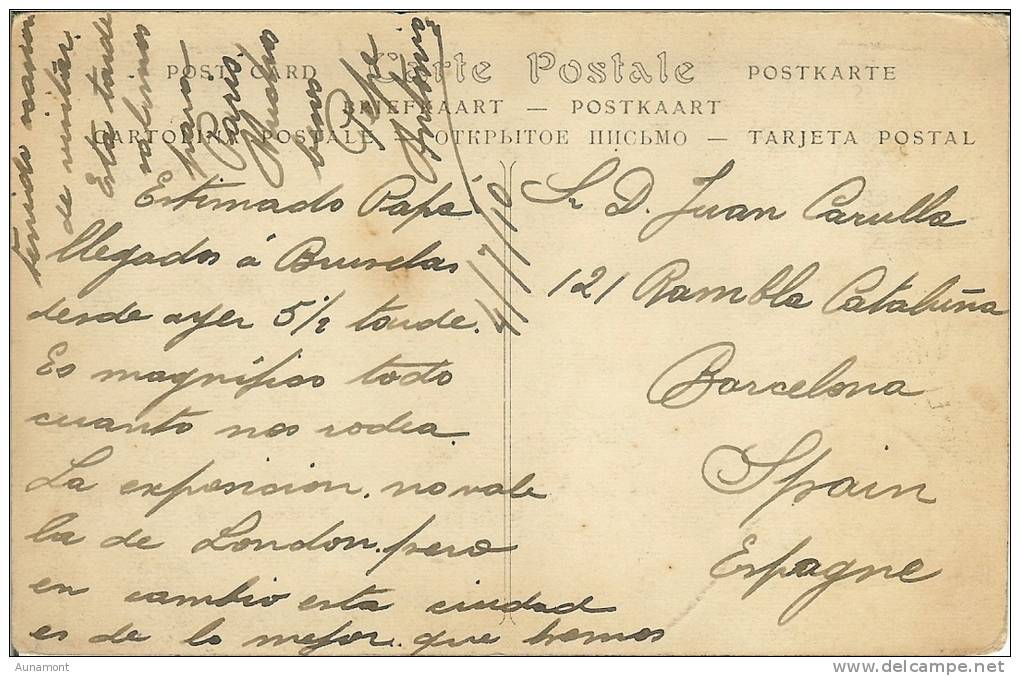 Carte Postale
POST CARD
POSTKARTE
BRIEFKAART — POSTKAART
CARTOLINA POSTALE — ОТКРЫТОЕ ПИСЬМО — TARJETA POSTAL
4/7/10
Estimado Papá
llegados á Bruselas
desde ayer 5 1/2 tarde.
Es magnífico todo
cuanto nos rodea.
La exposicion. no vale
la de London. pero
en cambio esta ciudad
es de lo mejor. que hemos
tenido
de visitar.
Esta tarde
salimos
para
Paris
Muchos
besos
Pepe
Sr D. Juan Carulla
121 Rambla Cataluña
Barcelona
Spain
Espagne
Aunamont
www.delcampe.net